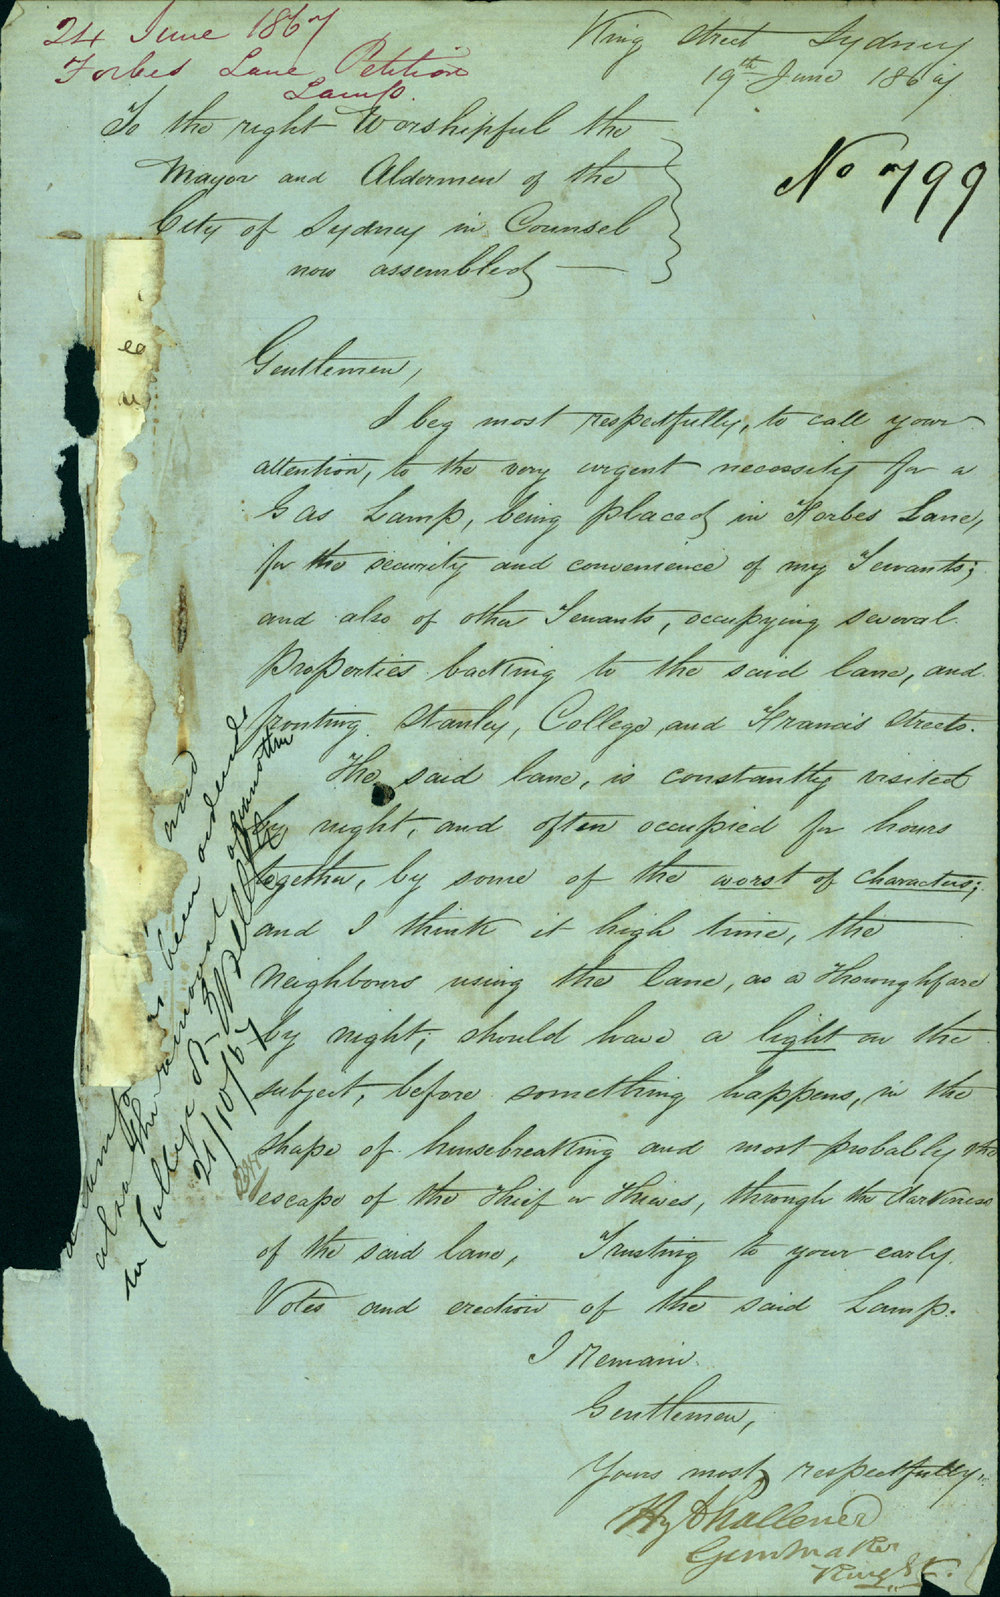 24 June 1867
Forbes Lane Petition
Lamp.
King Street Sydney
19th June 1867
No 799
To the right Worshipful the
Mayor and Aldermen of the
City of Sydney in Counsel
now assembled —
Gentlemen,
I beg most respectfully, to call your
attention, to the very urgent necessity for a
Gas Lamp, being placed in Forbes Lane,
for the security and convenience of my Tenants;
and also of other Tenants, occupying several
Properties backing to the said lane, and
fronting Stanley, College, and Francis Streets.
The said lane, is constantly visited
by night, and often occupied for hours
together, by some of the worst of characters;
and I think it high time, the
Neighbours using the lane, as a Thoroughfare
by night, should have a light on the
subject, before something happens, in the
shape of housebreaking and most probably the
escape of the thief or thieves, through the darkness
of the said lane, Trusting to your early
Votes and erection of the said Lamp.
I Remain
Gentlemen,
Yours most respectfully.
Hy Challener
Gunmaker
King St.
a lamp and
has been ordered
also the removal of another
in College St
21/10/67